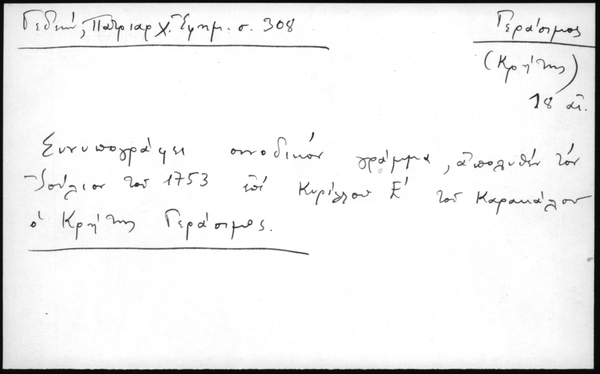 Γεδεών, Πατριαρχ. Ἐφημ. σ. 308
Γεράσιμος
(Κρήτης)
18 αἰ.
Συνυπογράφει συνοδικόν γράμμα, ἀπολυθέν τόν
Ἰούλιον τοῦ 1753 ἐπί Κυρίλλου Ε΄ τοῦ Καρακάλου
ὁ Κρήτης Γεράσιμος.